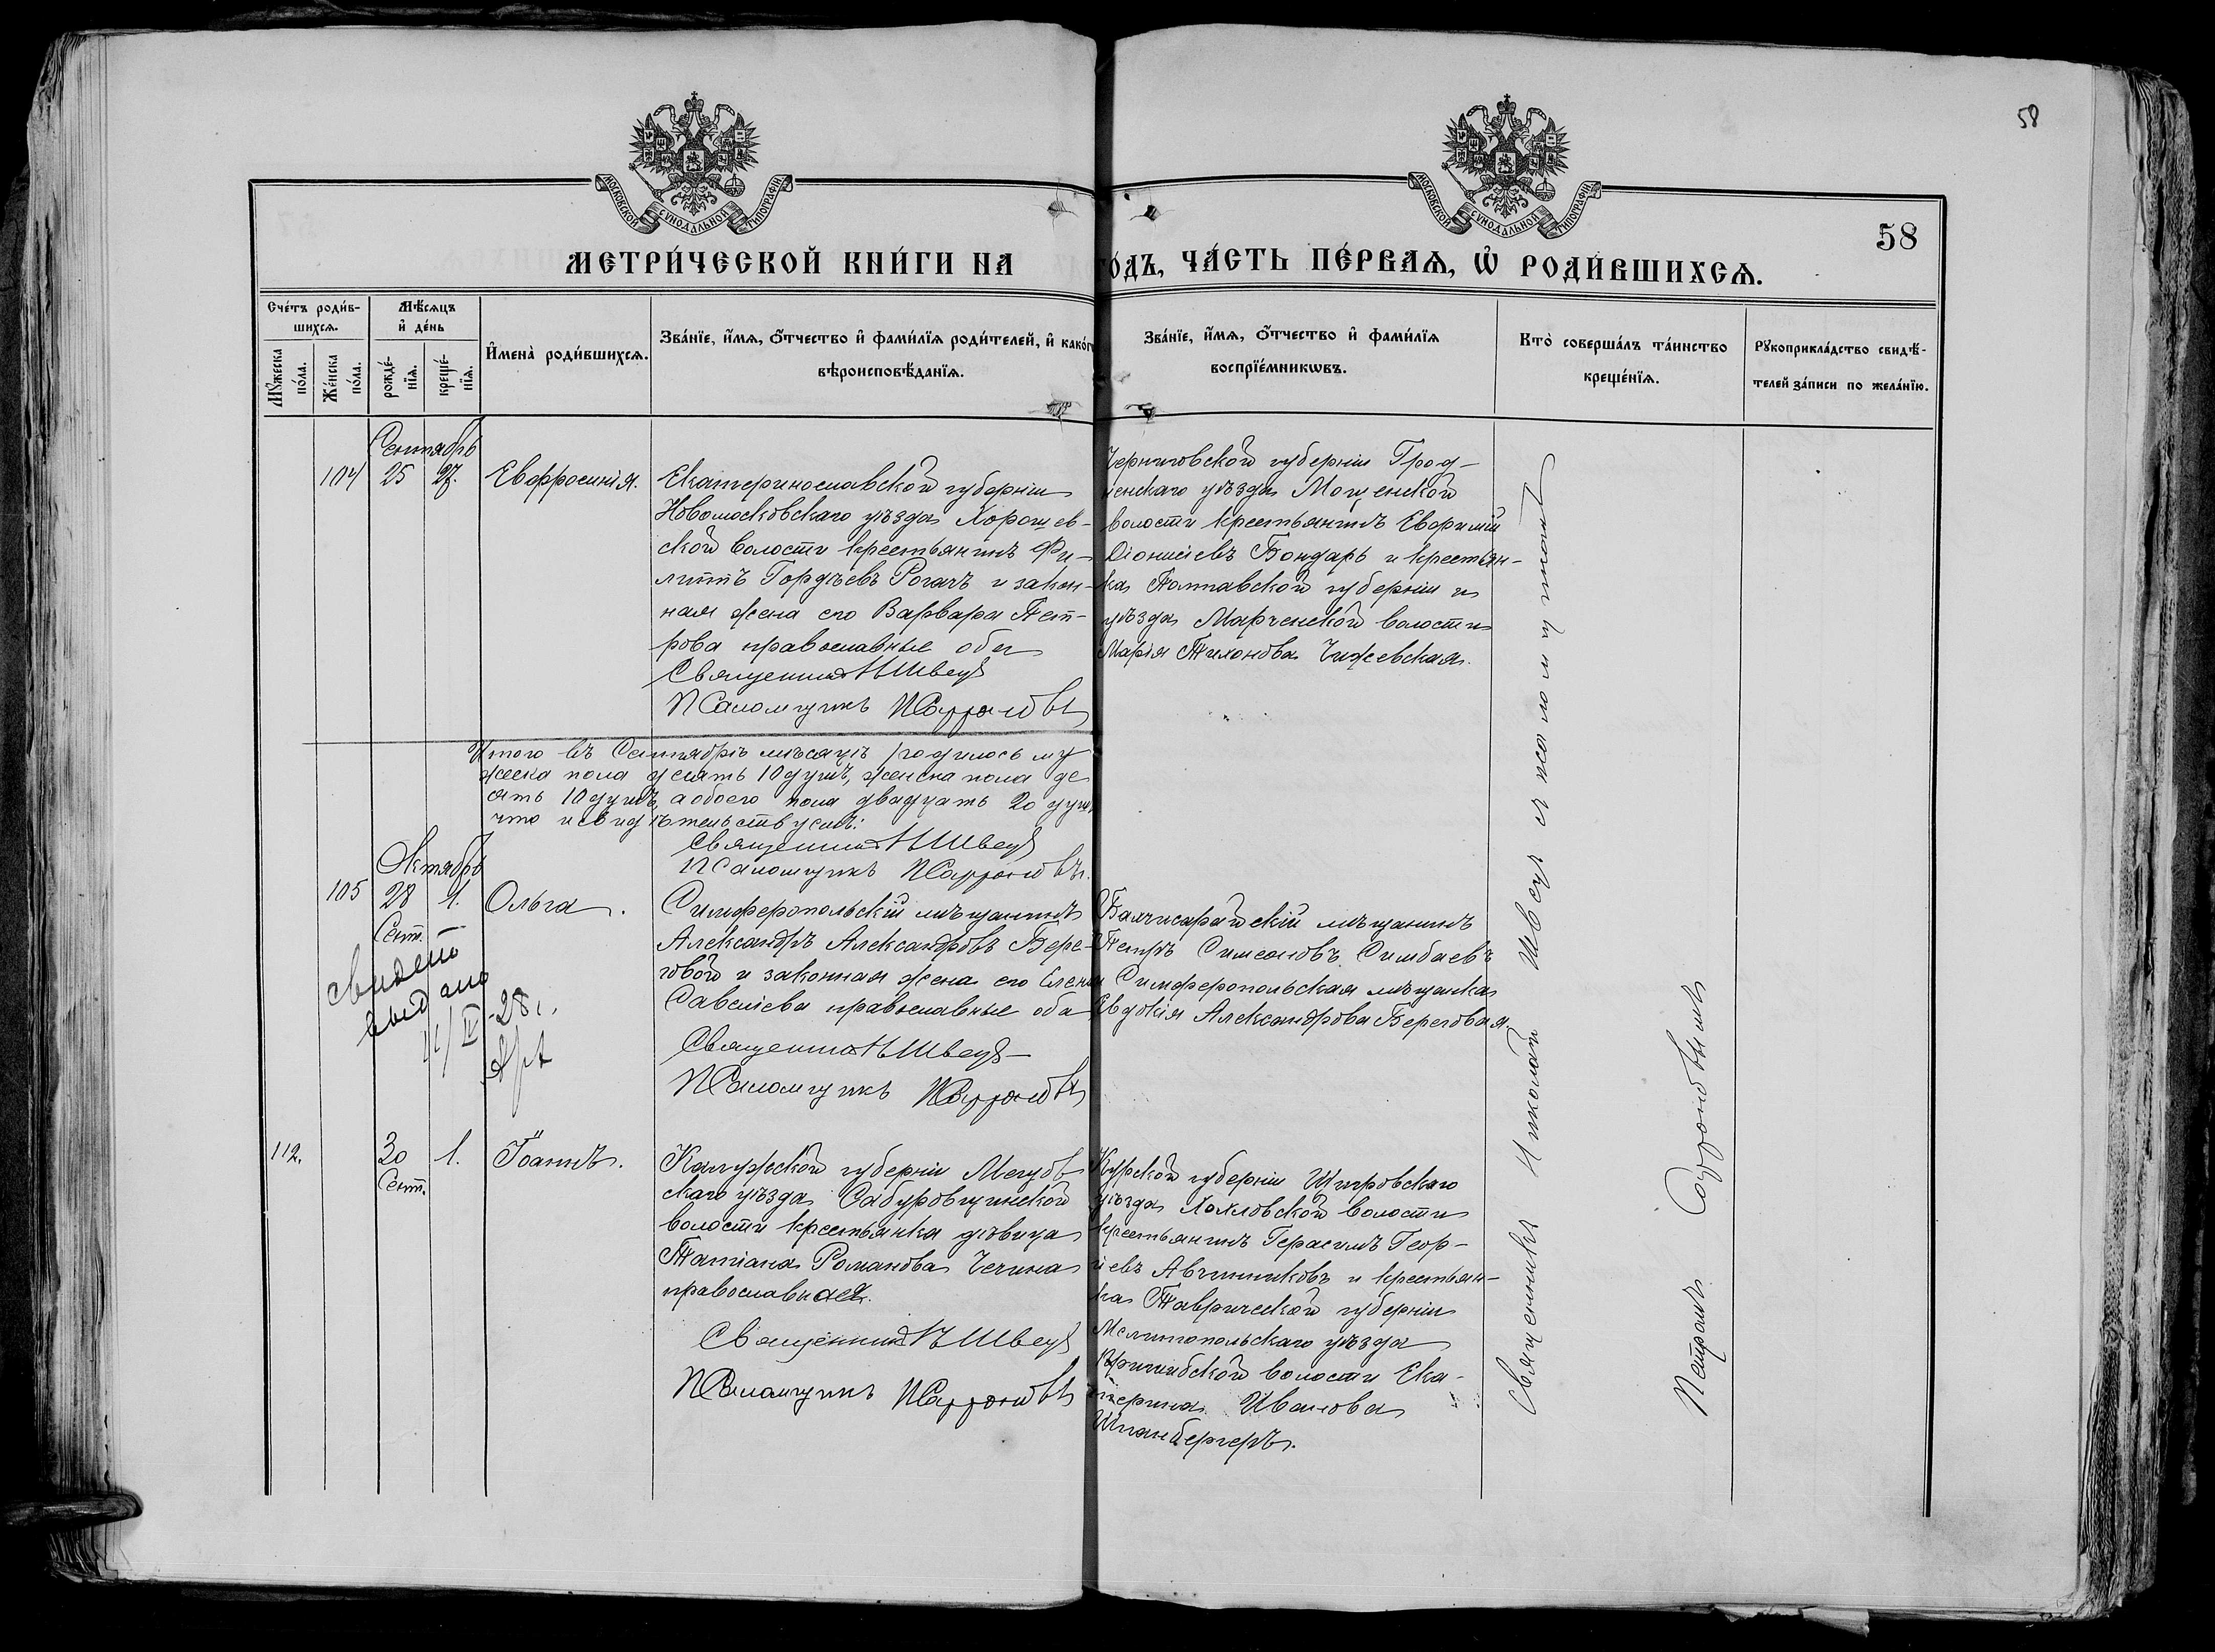 58
МОСКОВСКОЙ СѴНОДАЛЬНОЙ ТИПОГРАФІИ
МОСКОВСКОЙ СѴНОДАЛЬНОЙ ТИПОГРАФІИ
58
МЕТРИ́ЧЕСКОЙ КНИ́ГИ НА
ГО́ДЪ, ЧА́СТЬ ПЕ́РВАѦ, Ѡ҆ РОДИ́ВШИХСѦ.
Сче́тъ роди́в-
шихсѧ.
Мꙋ́жеска по́ла.
Же́нска по́ла.
Мѣ́сѧцъ
и҆ де́нь
рожде́-нїѧ.
креще́-нїѧ.
И҆мена̀ роди́вшихсѧ.
Зва́нїе, и҆́мѧ, ѻ҆́тчество и҆ фами́лїѧ роди́телей, и҆ како́гѡ
вѣроисповѣ́данїѧ.
Зва́нїе, и҆́мѧ, ѻ҆́тчество и҆ фами́лїѧ
воспрїе́мникѡвъ.
Кто̀ соверша́лъ та́инство
креще́нїѧ.
Рꙋкоприкла́дство свидѣ́-
телей за́писи по жела́нїю.
Сентябрь
104 25 27. Евфросинія.
Екатеринославской губерніи
Новомосковскаго уѣзда Хорошев-
ской волости крестьянинъ Фи-
липпъ Гордѣевъ Рогачъ и закон-
ная жена его Варвара Пет-
рова православные оба
Священникъ Н Швецъ
Псаломщикъ П Софроновъ
Черниговской губерніи Город-
ненскаго уѣзда
волости крестьянинъ Евфимій
Діонисіевъ Бондарь и крестьян-
ка Полтавской губерніи и
уѣзда Мачехской волости
Марія Тихонова Чижевская.
Итого въ Сентябрѣ мѣсяцѣ родилось му
жеска пола десять 10 душъ, женска пола де
сять 10 душъ, а обоего пола двадцать 20 душъ
что и свидѣтельствуемъ:
Священникъ Н Швецъ
Псаломщикъ П Софроновъ.
Октябрь
105 28 1. Ольга.
Сент.
Симферопольскій мѣщанинъ
Александръ Александровъ Бере-
говой и законная жена его Елена
Савельева православные оба
Священникъ Н Швецъ
Псаломщикъ П Софроновъ
Бахчисарайскій мѣщанинъ
Петръ Симеоновъ Симбаевъ
Симферопольская мѣщанка
Евдокія Александрова Береговая.
свидет
выдано
IV-28 г.
112. 30 1. Іоаннъ.
Сент.
Калужской губерніи Мещов-
скаго уѣзда Сабуровщинской
волости крестьянка дѣвица
Татіана Романова Чечина
православная.
Священникъ Н Швецъ
Псаломщикъ П Софроновъ
Курской губерніи Щигровскаго
уѣзда Хохловской волости
крестьянинъ Герасимъ Геор-
гіевъ Авчинниковъ и крестьян-
ка Таврической губерніи
Мелитопольскаго уѣзда
Пришибской волости Ека-
терина Иванова
Шпанбергеръ.
Священникъ Николай Швецъ и псаломщикомъ
Петромъ Софроновымъ